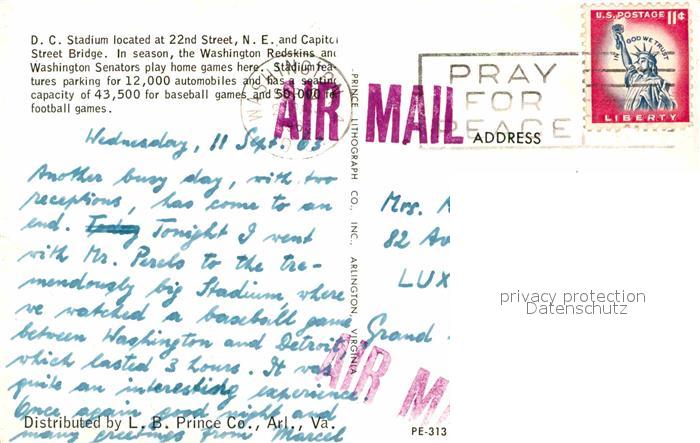 D. C. Stadium located at 22nd Street, N. E. and Capitol
Street Bridge. In season, the Washington Redskins and
Washington Senators play home games here. Stadium fea-
tures parking for 12,000 automobiles and has a seating
capacity of 43,500 for baseball games and 50,000 for
football games.
U.S. POSTAGE 11¢
IN GOD WE TRUST
LIBERTY
PRAY
FOR
PEACE
AIR MAIL
ADDRESS
Wednesday, 11 Sept. 63
Another busy day, with two
receptions, has come to an
end. Today Tonight I went
with Mr. Perels to the tre-
mendously big Stadium, where
we watched a baseball game
between Washington and Detroit
which lasted 3 hours. It was
quite an interesting experience
Once again good night and
many greetings from Marcel
Distributed by L. B. Prince Co., Arl., Va.
PRINCE LITHOGRAPH CO., INC., ARLINGTON, VIRGINIA
Mrs.
82 Av
LUX
Grand
privacy protection
Datenschutz
AIR MA
PE-313